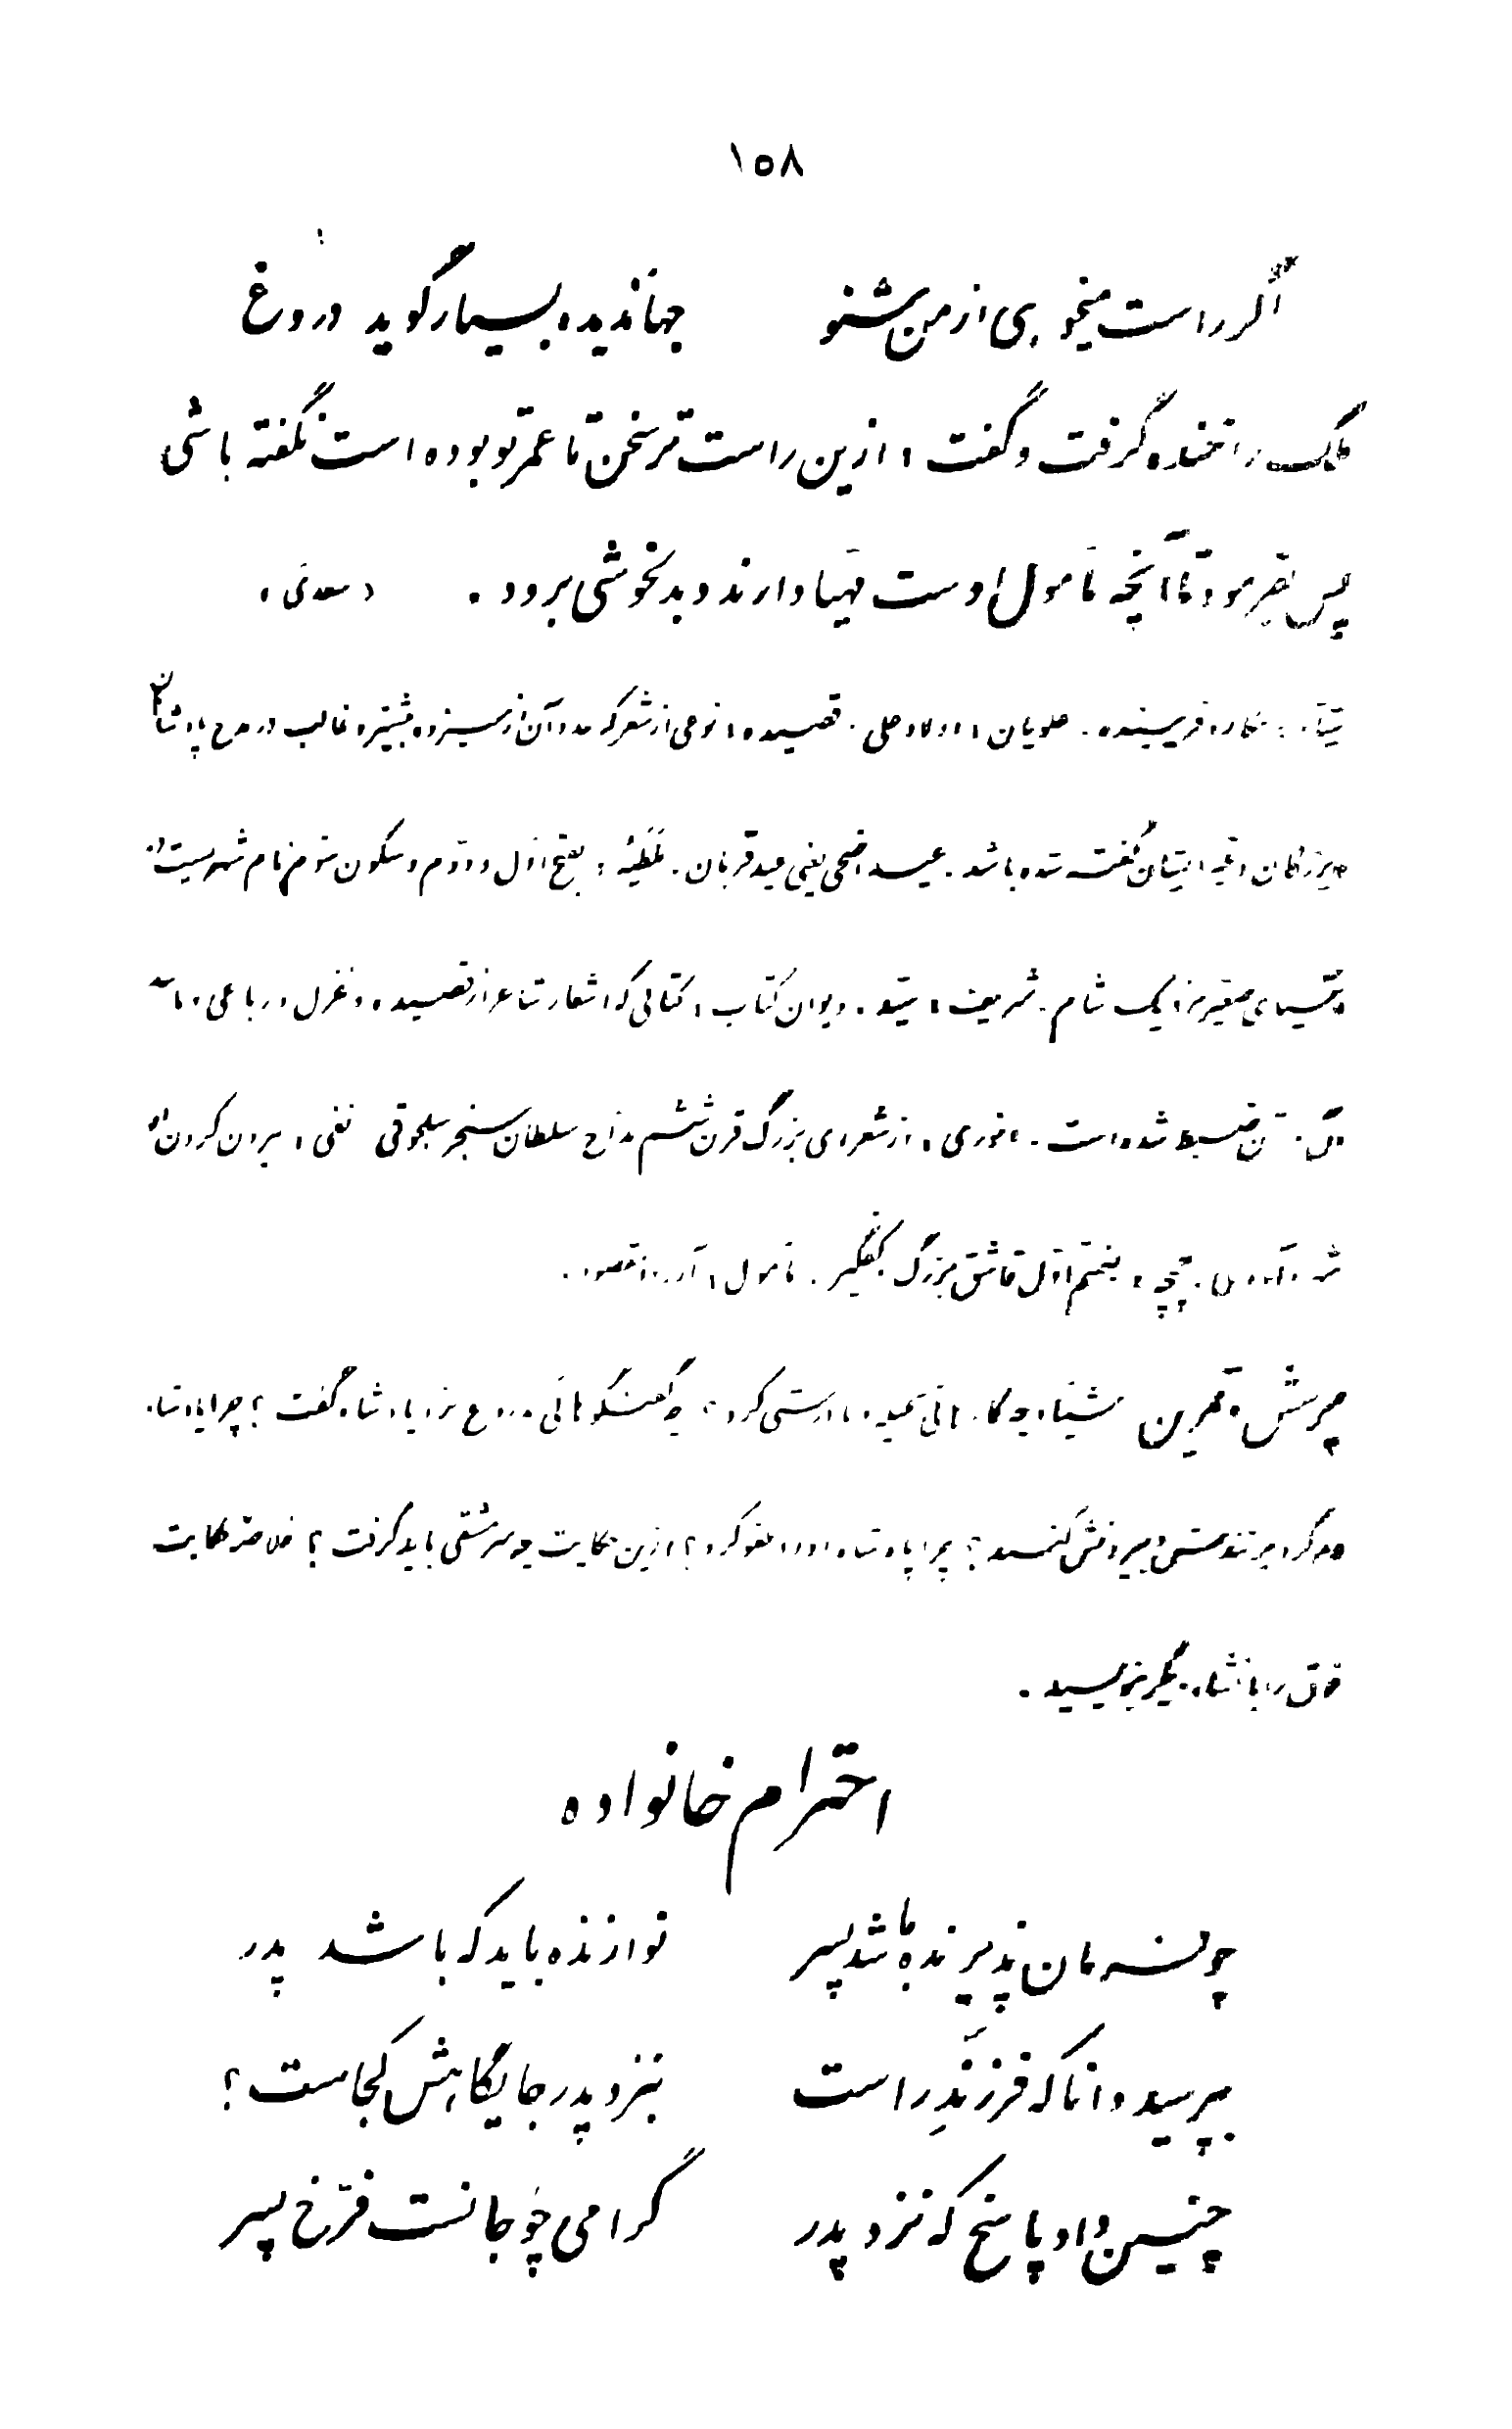 ۱۵۸
اگر راست میخوهی از من شنو جهاندیده بسیار گوید دروغ
ملک را خنده گرفت و گفت، ازین راست تر سخن تا عمر تو بوده است نگفته باشی
پس بفرمود تا آنچه مأمول اوست مهیا دارند و بدلخوشی برود. (سعدی)
شیّاد: مکار، فریبنده. علویان، اولاد علی. قصیده، نوعی از شعر که عدد آن از سیزده بیشتر و غالب در مدح پادشاهان
و بزرگان و غیر ایشان گفته شده باشد. عید اضحی یعنی عید قربان. ملطیه، بفتح اول و دوم و سکون سوم نام شهریست در
آسیای صغیر نزدیک شام. شریف، سیّد. دیوان کتاب، کتابی که اشعار شاعر از قصیده و غزل و رباعی و مانند
آن در آن ضبط شده است. انوری، از شعرای بزرگ قرن ششم مداح سلطان سنجر سلجوقی نفی، بیرون کردن از
شهر. چمچه، بضمّ اول قاشق بزرگ کفگیر. مأمول، آرزو، مقصود.
پرسش و تمرین شیاد چه کار هائی بحیله و نادرستی کرد؟ چه گفتگو هائی دروغ نزد پادشاه گفت؟ چرا پادشاه
امر کرد بزنندش و بیرونش کنند؟ چرا پادشاه او را عفو کرد؟ ازین حکایت چه سرمشقی باید گرفت؟ خلاصه حکایت
فوق را بانشاء دیگر بنویسید.
احترام خانواده
چو فرمان پذیرنده باشد پسر نوازنده باید که باشد پدر
بپرسید دانا که فرزند راست بنزد پدر جایگاهش کجاست؟
چنین داد پاسخ که نزد پدر گرامی چو جانست فرّخ پسر